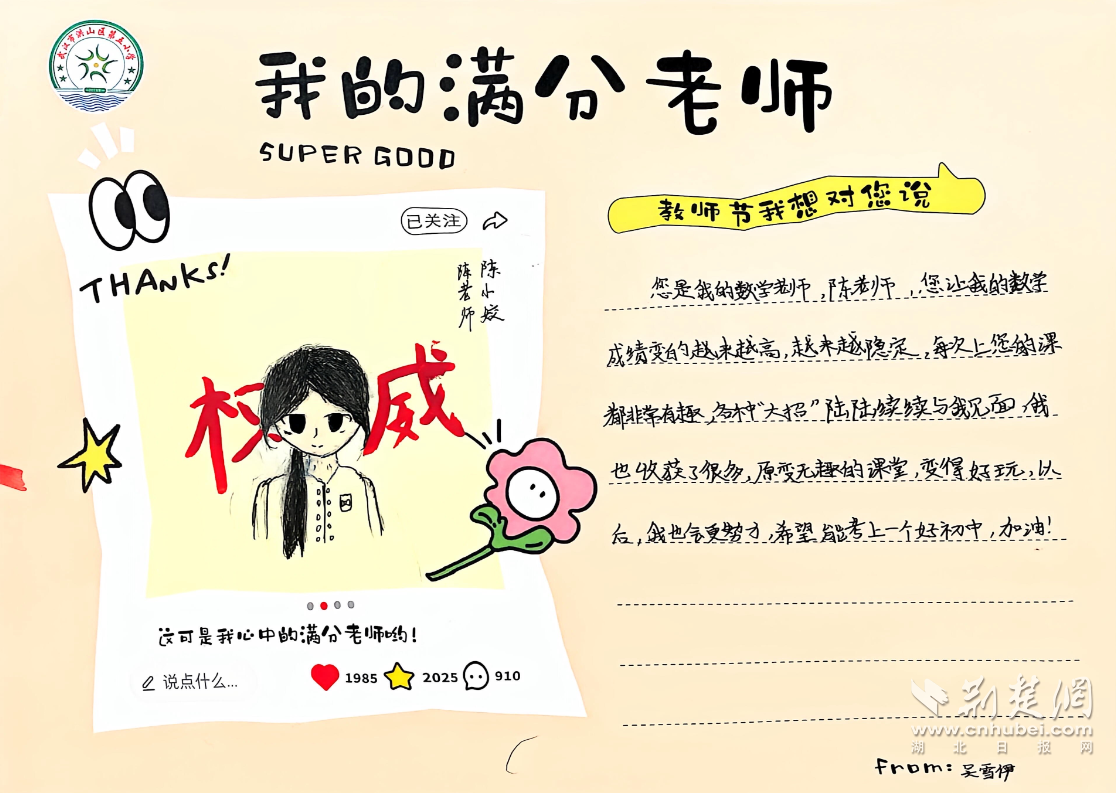 武汉市洪山区第五小学
我的满分老师
SUPER GOOD
THANKS!
已关注
陈小姣
陈老师
权威
这可是我心中的满分老师哟!
说点什么...
1985 2025 910
教师节我想对您说
您是我的数学老师,陈老师,您让我的数学
成绩变的越来越高,越来越稳定,每次上您的课
都非常有趣,各种“大招”陆陆续续与我见面,我
也收获了很多,原变无趣的课堂,变得好玩,以
后,我也会更努力,希望能考上一个好初中,加油!
From: 吴雪伊
荆楚网
www.cnhubei.com
湖北日报网